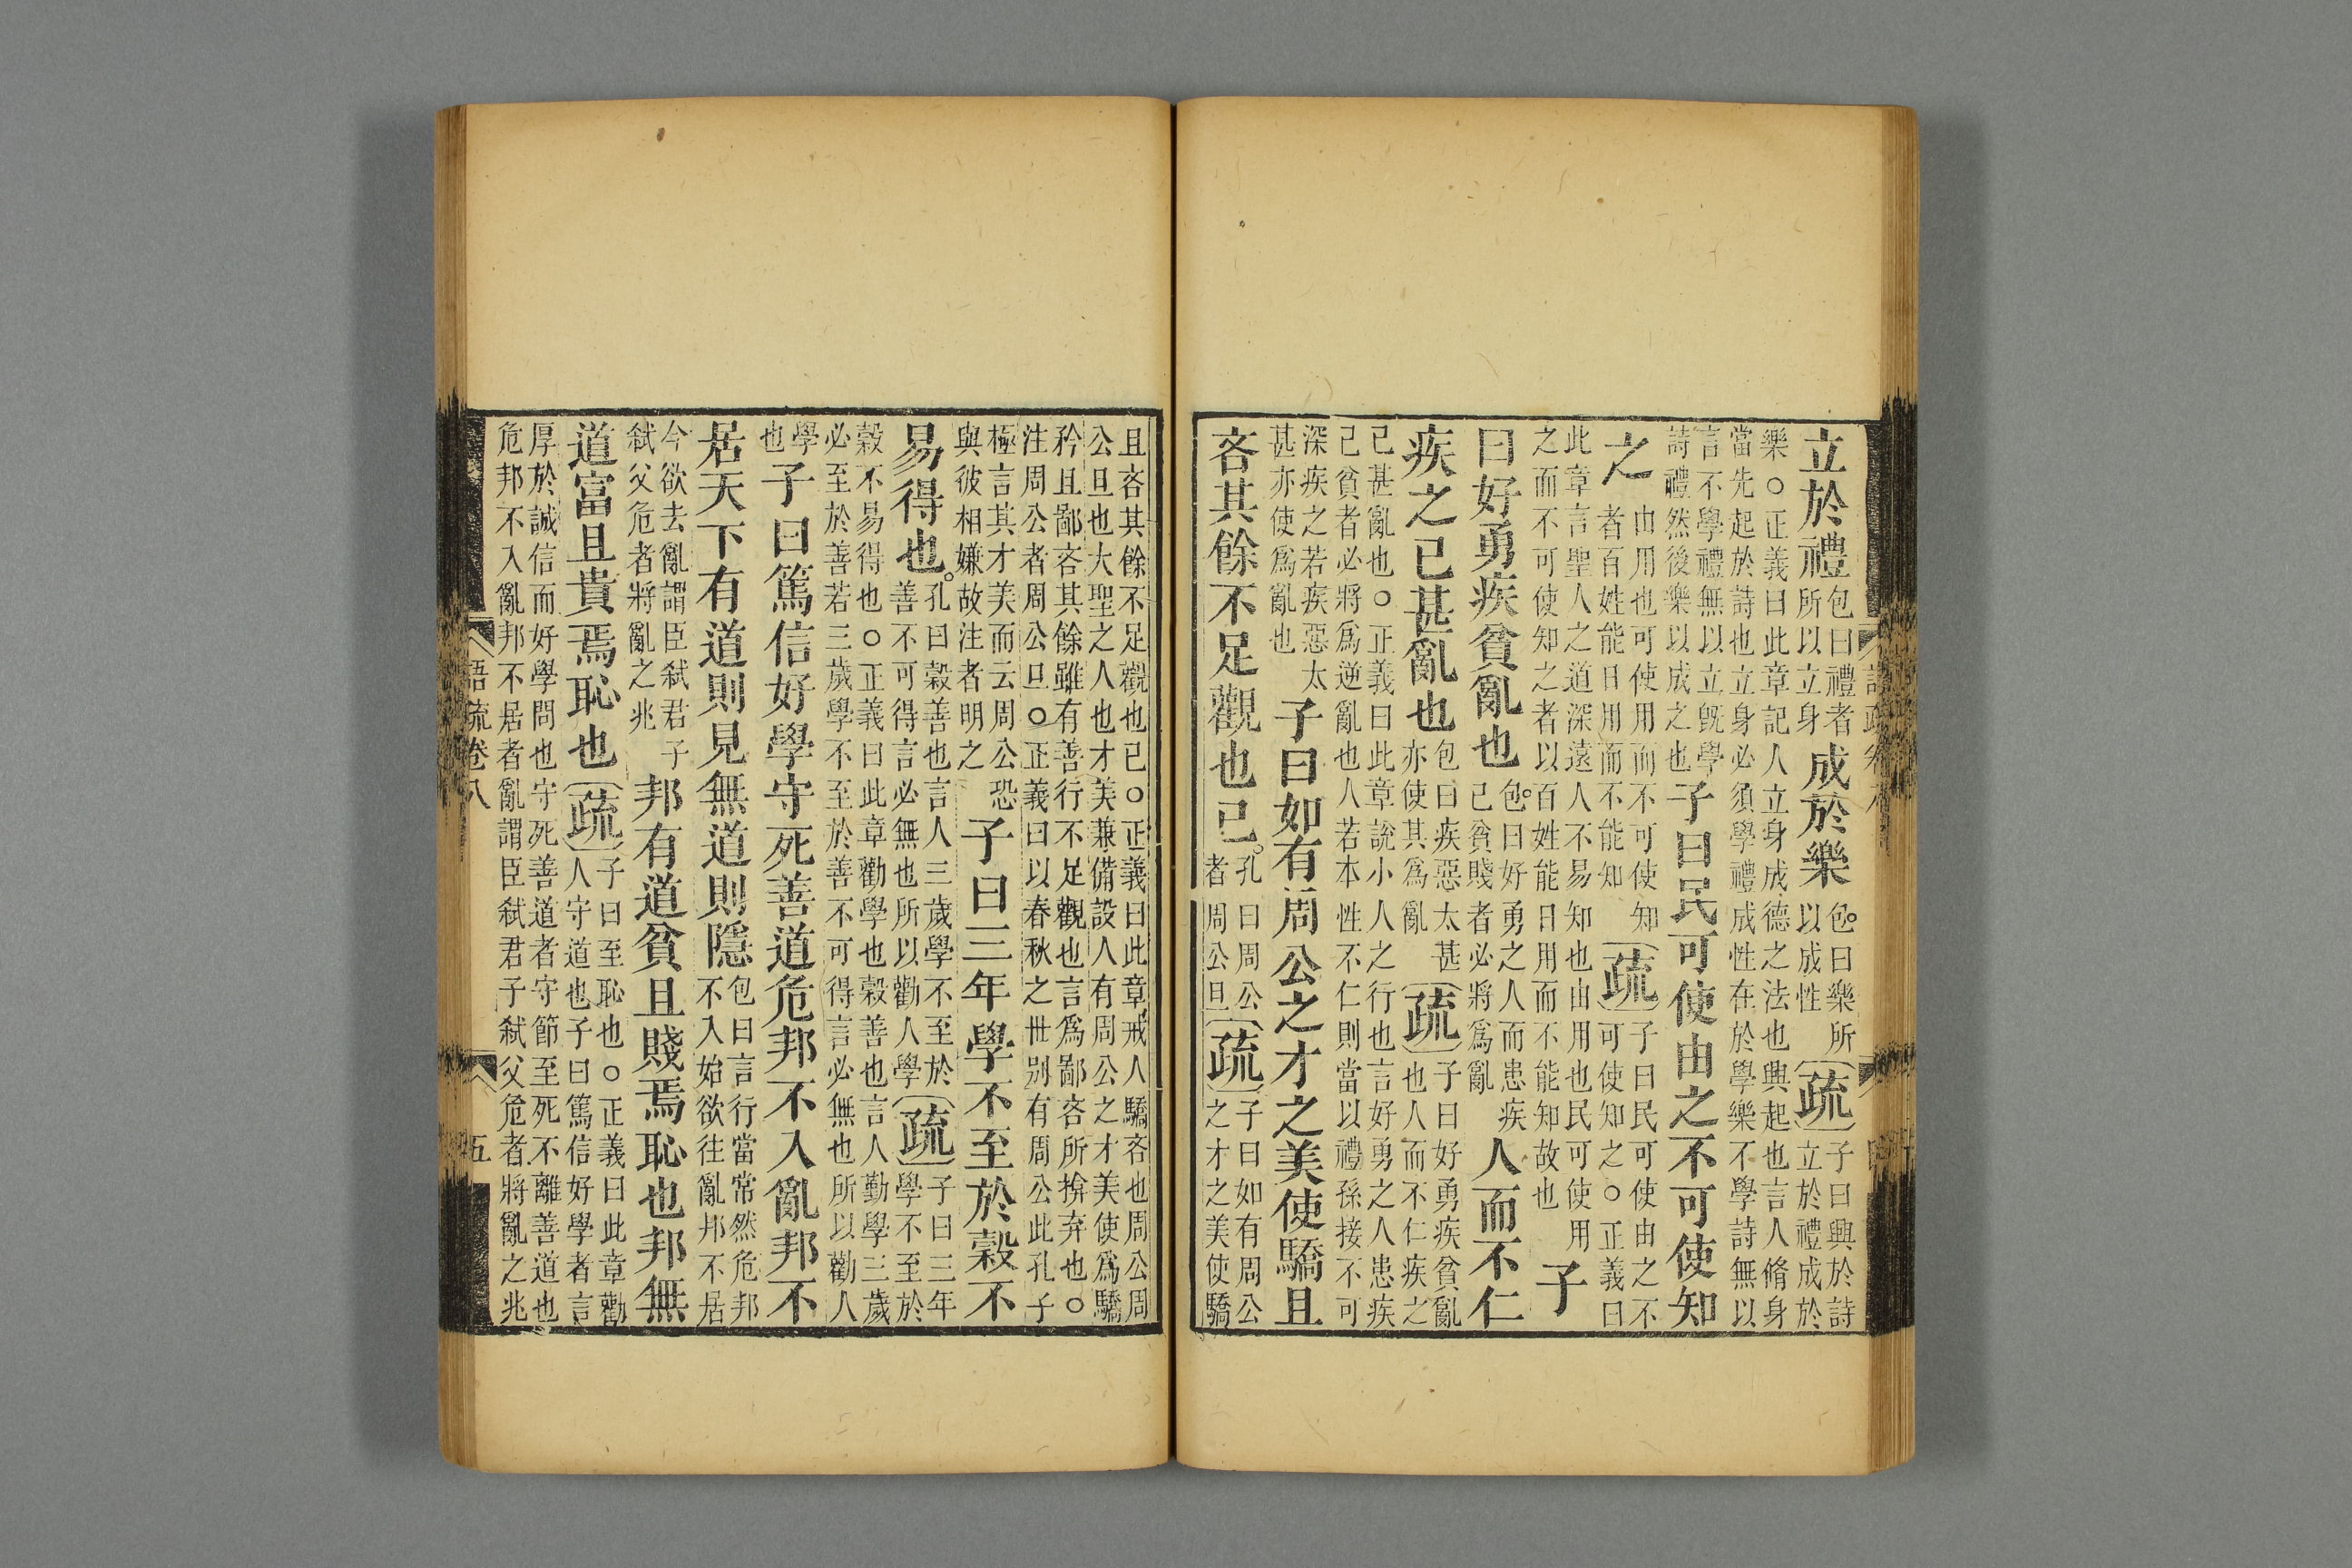 立於禮包曰禮者所以立身成於樂包曰樂所以成性疏子曰興於詩立於禮成於
樂○正義曰此章記人立身成德之法也興起也言人脩身
當先起於詩也立身必須學禮成性在於學樂不學詩無以
言不學禮無以立旣學詩禮然後樂以成之也子曰民可使由之不可使知
之由用也可使用而不可使知者百姓能日用而不能知疏子曰民可使由之不可使知之○正義曰
此章言聖人之道深遠人不易知也由用也民可使用之而不可使知之者以百姓能日用而不能知故也子
曰好勇疾貧亂也包曰好勇之人而患疾己貧賤者必將爲亂人而不仁
疾之已甚亂也包曰疾惡太甚亦使其爲亂疏子曰好勇疾貧亂也人而不仁疾之
已甚亂也○正義曰此章說小人之行也言好勇之人患疾
己貧者必將爲逆亂也人若本性不仁則當以禮孫接不可
深疾之若疾惡太甚亦使爲亂也子曰如有周公之才之美使驕且
吝其餘不足觀也已孔曰周公者周公旦疏子曰如有周公之才之美使驕
且吝其餘不足觀也已○正義曰此章戒人驕吝也周公周
公旦也大聖之人也才美兼備設人有周公之才美使爲驕
矜且鄙吝其餘雖有善行不足觀也言爲鄙吝所揜弃也○
注周公者周公旦○正義曰以春秋之世別有周公此孔子
極言其才美而云周公恐與彼相嫌故注者明之子曰三年學不至於穀不
易得也孔曰穀善也言人三歲學不至於善不可得言必無也所以勸人學疏子曰三年學不至於
穀不易得也○正義曰此章勸學也穀善也言人勤學三歲
必至於善若三歲學不至於善不可得言必無也所以勸人
學也子曰篤信好學守死善道危邦不入亂邦不
居天下有道則見無道則隱包曰言行當常然危邦不入始欲往亂邦不居
今欲去亂謂臣弑君子弑父危者將亂之兆邦有道貧且賤焉恥也邦無
道富且貴焉恥也疏子曰至恥也○正義曰此章勸人守道也子曰篤信好學者言
厚於誠信而好學問也守死善道者守節至死不離善道也
危邦不入亂邦不居者亂謂臣弑君子弑父危者將亂之兆
語疏卷八
五